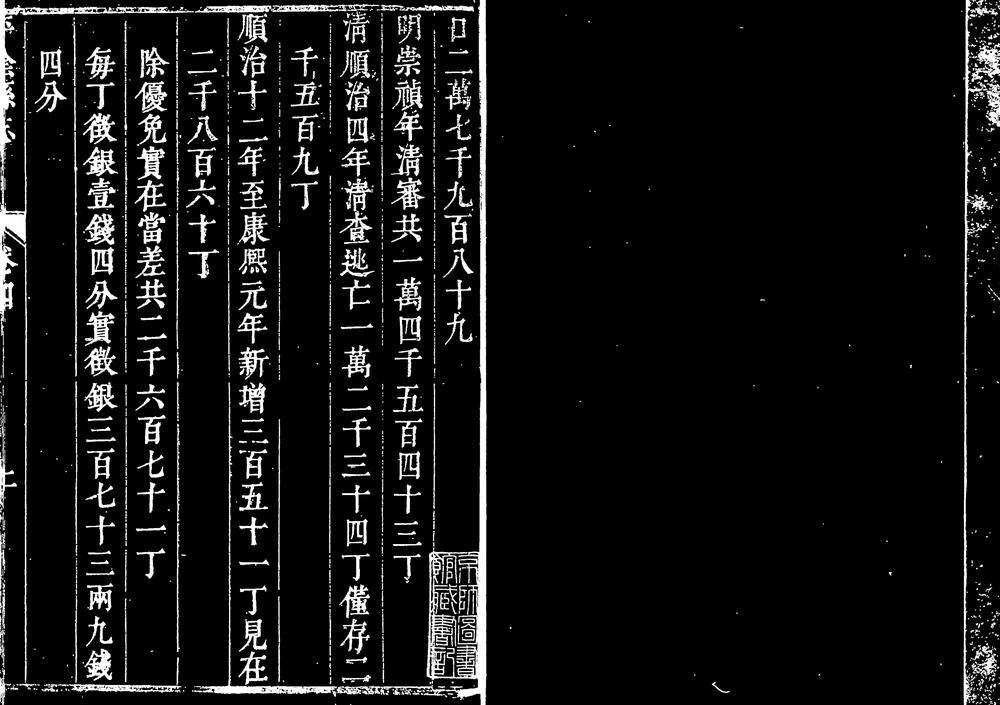 口二萬七千九百八十九
明崇禎年清審共一萬四千五百四十三丁
清順治四年清查逃亡一萬二千三十四丁僅存二
千五百九丁
順治十二年至康熙元年新增三百五十一丁見在
二千八百六十丁
除優免實在當差共二千六百七十一丁
每丁徵銀壹錢四分實徵銀三百七十三兩九錢
四分
卷四
京師圖書
館藏書記